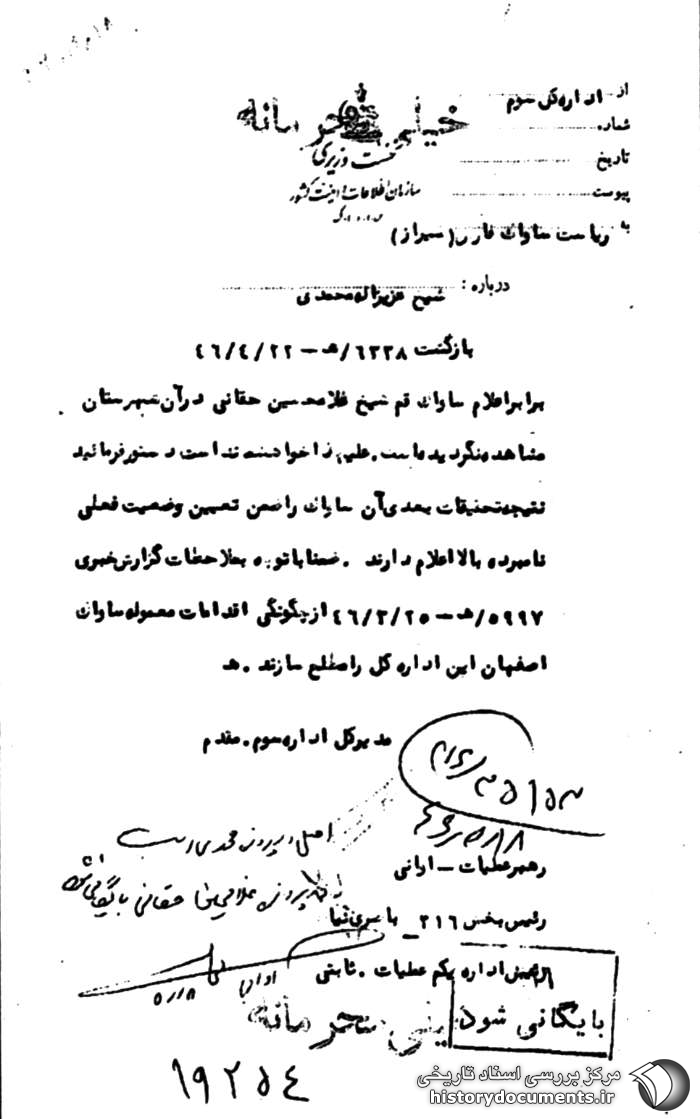 از اداره کل سوم
خیلی محرمانه
شماره
نخست وزیری
تاریخ
سازمان اطلاعات و امنیت کشور
پیوست
س.ا.و.ا.ک
به ریاست ساواک فارس (شیراز)
درباره: شیخ عزیزاله محمدی
بازگشت ۶۳۳۸/ه‍ - ۴۶/۴/۲۲
برابر اعلام ساواک قم شیخ غلامحسین حقانی در آن شهرستان
مشاهده نگردیده است. علیهذا خواهشمند است دستور فرمائید
نتیجه تحقیقات بعدی آن ساواک را ضمن تعیین وضعیت فعلی
نامبرده بالا اعلام دارند. ضمنا با توجه بملاحظات گزارش خبری
۵۹۹۷/ه‍ - ۴۶/۳/۲۵ از چگونگی اقدامات معموله ساواک
اصفهان این اداره کل را مطلع سازند. ه‍
مدیرکل اداره سوم. مقدم
۳۱۶/۳۵۱۵۳
اصل در پرونده محمدی است
رهبر عملیات - ارانی
در پرونده غلامحسین حقانی بایگانی
رئیس بخش ۳۱۶ - یاسری نیا
رئیس اداره یکم عملیات. ثابتی
ارانی
۵/۸
بایگانی شود
خیلی محرمانه
۱۹۲۵۴
مرکز بررسی اسناد تاریخی
historydocuments.ir